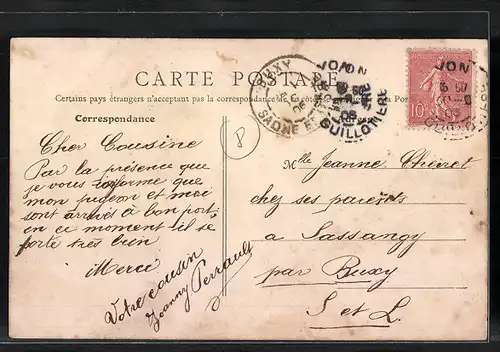 CARTE POSTALE
Certains pays étrangers n'acceptant pas la correspondance de ce côté
Correspondance
Adresse
BUXY
SAONE ET
LYON
GUILLOTIERE
LYON
10
8
Cher Cousine
Par la présence que
je vous informe que
mon pigeon et moi
sont arrivés à bon port,
en ce moment il se
porte très bien
Merci
Votre cousin
Joanny Perrault
Melle Jeanne
chez ses parents
a Sassangy
par Buxy
S et L.